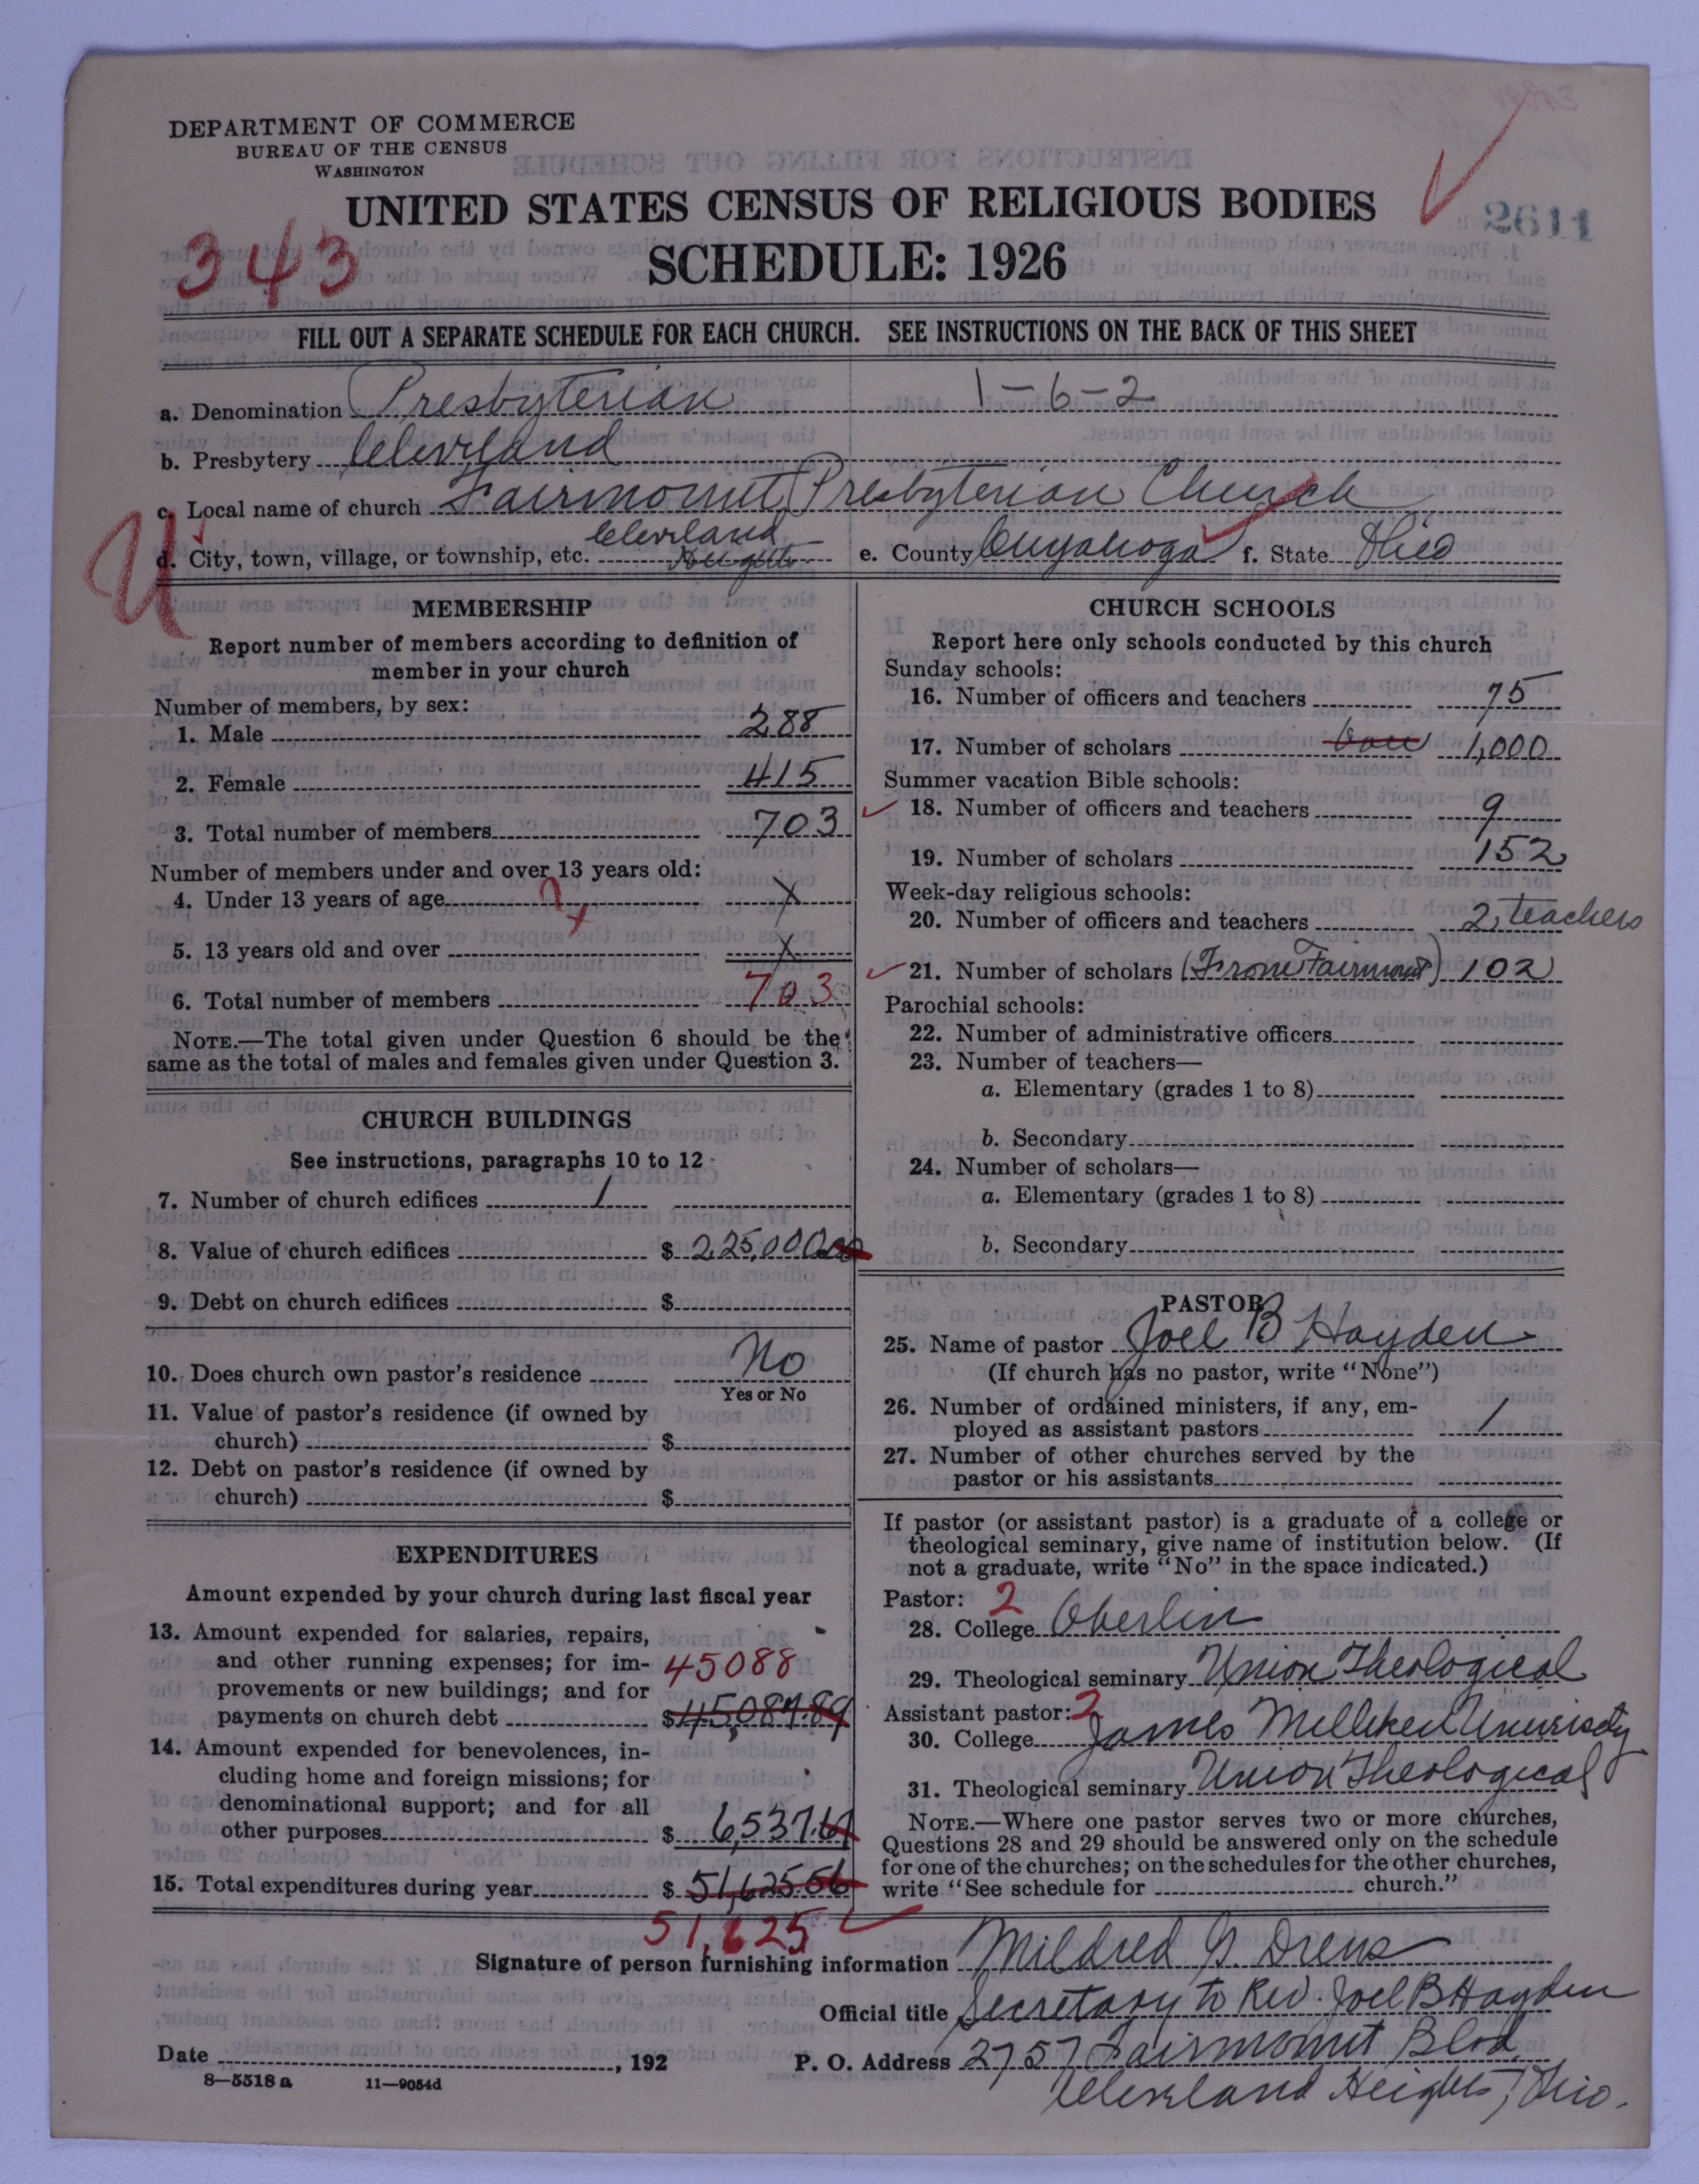 DEPARTMENT OF COMMERCE
BUREAU OF THE CENSUS
WASHINGTON
UNITED STATES CENSUS OF RELIGIOUS BODIES
2611
343
SCHEDULE: 1926
FILL OUT A SEPARATE SCHEDULE FOR EACH CHURCH. SEE INSTRUCTIONS ON THE BACK OF THIS SHEET
a. Denomination Presbyterian 1-6-2
b. Presbytery Cleveland
c. Local name of church Fairmount Presbyterian Church
U
d. City, town, village, or township, etc. Cleveland Heights e. County Cuyahoga f. State Ohio
MEMBERSHIP
Report number of members according to definition of
member in your church
Number of members, by sex:
1. Male 288
2. Female 415
3. Total number of members 703
Number of members under and over 13 years old:
4. Under 13 years of age ? x X
5. 13 years old and over X
6. Total number of members 703
NOTE.—The total given under Question 6 should be the
same as the total of males and females given under Question 3.
CHURCH BUILDINGS
See instructions, paragraphs 10 to 12
7. Number of church edifices 1
8. Value of church edifices $ 225,000.00
9. Debt on church edifices $
10. Does church own pastor's residence No
Yes or No
11. Value of pastor's residence (if owned by
church) $
12. Debt on pastor's residence (if owned by
church) $
EXPENDITURES
Amount expended by your church during last fiscal year
13. Amount expended for salaries, repairs,
and other running expenses; for im- 45088
provements or new buildings; and for
payments on church debt $ 45,087.89
14. Amount expended for benevolences, in-
cluding home and foreign missions; for
denominational support; and for all
other purposes $ 6,537.67
15. Total expenditures during year $ 51,625.56
51,625
CHURCH SCHOOLS
Report here only schools conducted by this church
Sunday schools:
16. Number of officers and teachers 75
17. Number of scholars 1,000
Summer vacation Bible schools:
18. Number of officers and teachers 9
19. Number of scholars 152
Week-day religious schools:
20. Number of officers and teachers 2 teachers
21. Number of scholars (From Fairmount) 102
Parochial schools:
22. Number of administrative officers
23. Number of teachers—
a. Elementary (grades 1 to 8)
b. Secondary
24. Number of scholars—
a. Elementary (grades 1 to 8)
b. Secondary
PASTOR
25. Name of pastor Joel B Hayden
(If church has no pastor, write "None")
26. Number of ordained ministers, if any, em-
ployed as assistant pastors 1
27. Number of other churches served by the
pastor or his assistants
If pastor (or assistant pastor) is a graduate of a college or
theological seminary, give name of institution below. (If
not a graduate, write "No" in the space indicated.)
Pastor: 2
28. College Oberlin
29. Theological seminary Union Theological
Assistant pastor: 2
30. College James Milliken University
31. Theological seminary Union Theological
NOTE.—Where one pastor serves two or more churches,
Questions 28 and 29 should be answered only on the schedule
for one of the churches; on the schedules for the other churches,
write "See schedule for church."
Signature of person furnishing information Mildred G. Drews
Official title Secretary to Rev. Joel B Hayden
Date , 192 P. O. Address 2757 Fairmount Blvd
8—5518 a 11—9054d
Cleveland Heights, Ohio.